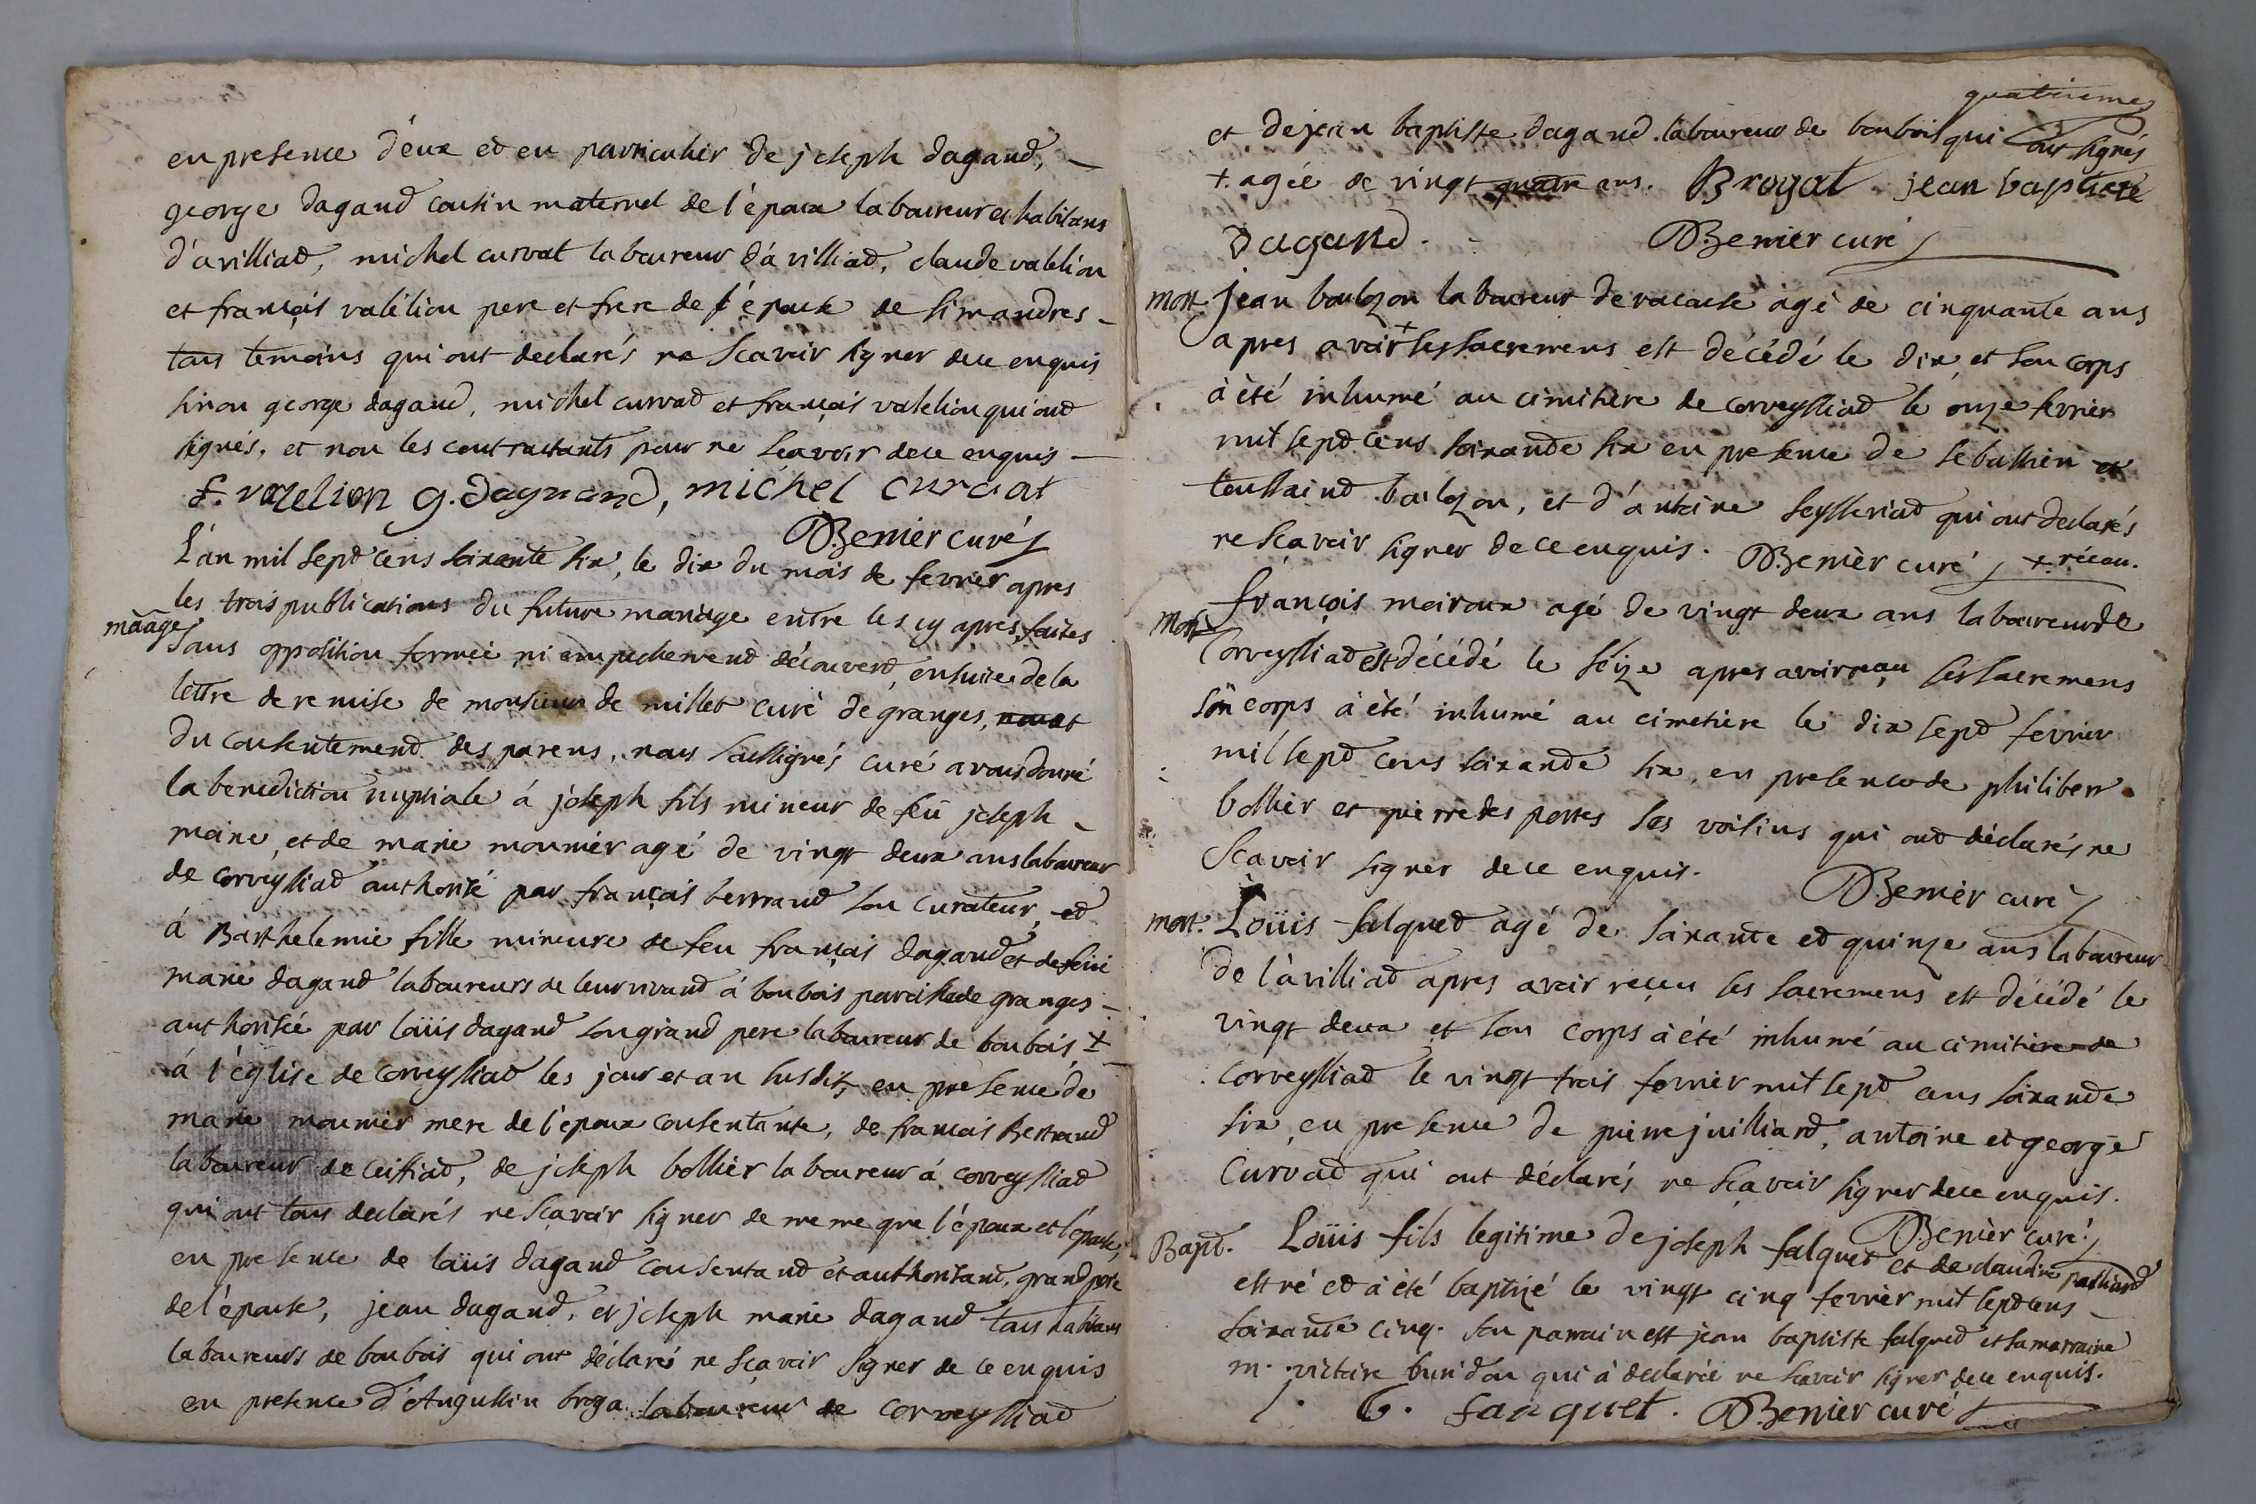 en presence d'eux et en particulier de joseph dagand,
george dagand cousin maternel de l'epoux laboureur et habitans
d'avilliad, michel curvat laboureur d'avilliad, claude valelion
et françois valélion pere et frere de l'épouse de simandres
tous temoins qui ont declarés ne scavoir signer de ce enquis
sinon george dagand, michel curvad et françois valelion qui ont
signés, et non les contractants pour ne scavoir de ce enquis
f. vazelion g. dagnand, michel curvat
Benier curé
L'an mil sept cens soixante six, le dix du mois de fevrier apres
les trois publications du future mariage entre les cy apres, faites
màage
sans opposition formée ni empechement découverd, ensuite de la
lettre de remise de monsieur de millet curé de granges, et
du consentement des parens, nous soussignés curé avons donné
la benediction nuptiale á joseph fils mineur de feü joseph
moine, et de marie mounier agé de vingt deux ans laboureur
de corveyssiad authorisé par françois bertrand son curateur, et
á Barthelemie fille mineure de feu français dagand et de feüe
marie dagand laboureurs de leur vivand á boubois paroisse de granges
authorisée par loüis dagand son grand pere laboureur de boubois +
á l'église de corveyssiad les jour et an susdits en presence de
marie mounier mere de l'époux consentante, de francois Bertrand
laboureur de ceissiad, de joseph bollier laboureur á corveyssiad
qui ont tous declarés ne sçavoir signer de meme que l'époux et l'épouse,
en presence de loüis dagand consentand et authorisant, grand pere
de l'épouse, jean dagand, et joseph marie dagand tous habitans
laboureurs de boubois qui ont déclarés ne sçavoir signer de ce enquis
en presence d'Augustin broga laboureur de corveyssiad
quatrieme
et de jean baptiste dagand laboureur de boubois qui ont signés
+. agée de vingt quatre ans. Brogat jean baptiste
dagand. Benier curé
mort. jean boulzon laboureur de agé de cinquante ans
apres avoir + les sacremens est décédé le dix et son corps
à été inhumé au cimitiere de corveyssiad le onze fevrier
mil sept cens soixande six en presence de sebastien et
toussaind boilzon, et d'antoine seysseriad qui ont declarés
ne sçavoir signer de ce enquis. Benièr curé +. réceu.
françois moiroux agé de vingt deux ans laboureur de
Mort
Corveyssiad est décédé le séize apres avoir reçu les sacremens
son corps à été inhumé au cimetière le dix sept fevrier
mil sept cens soixande six, en presence de philibert
bollier et pierre des portes ses voisins qui ont déclarés ne
sçavoir signer de ce enquis.
Benièr curé
mort. Loüis falqued agé de soixante ed quinze ans laboureur
de l'àvilliad apres avoir reçeu les sacremens est décédé le
vingt deux et son corps à été inhumé au cimitiere de
corveyssiad le vingt trois fevrier mil sept cens soixande
six, en presence de pierre juilliard, antoine et george
Curvad qui ont déclarés ne sçavoir signer de ce enquis.
Benièr curé
Bapt. Loüis fils legitime de joseph falquet et de claudine
est né ed à été baptizé le vingt cinq fevrier mil sept cens
soixante cinq. son parrain est jean baptiste falqued et sa marraine
m. victoire buridon qui à declarée ne scavoir signer de ce enquis.
falquet. Benier curé